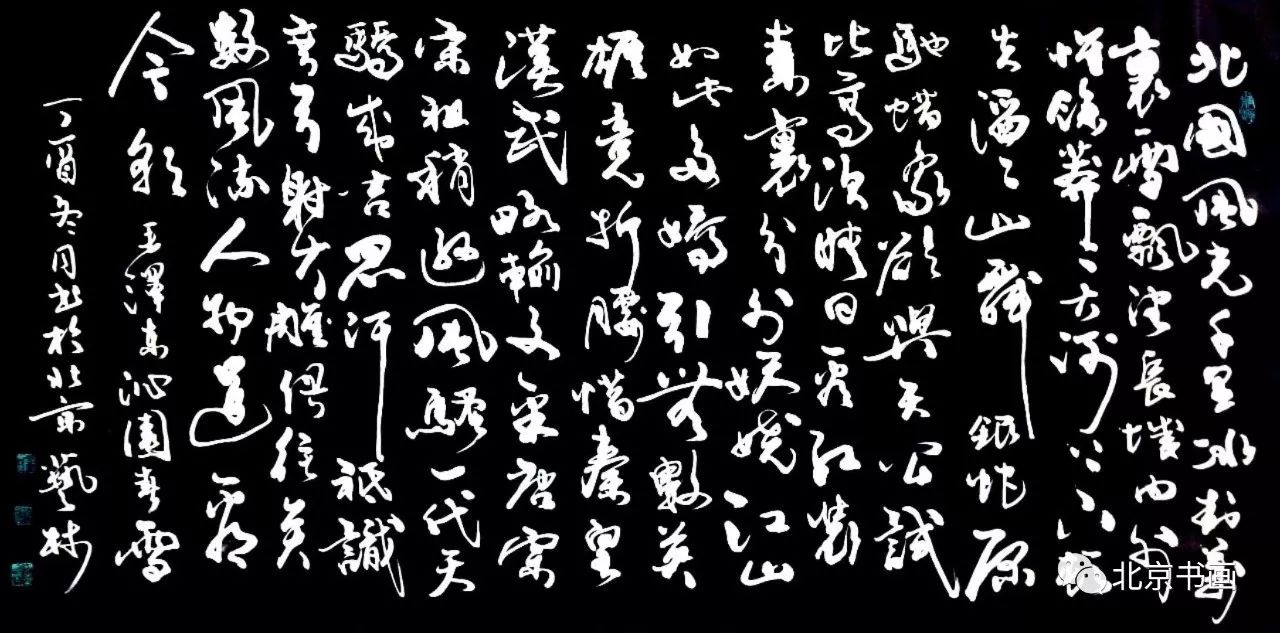 北國風光千里冰封萬
裏雪飄望長城内外
惟餘莽〻大河上下頓
失滔〻山舞銀蛇原
馳蠟象欲與天公試
比高須晴日看紅裝
素裹分外妖嬈江山
如此多嬌引無數英
雄竟折腰惜秦皇
漢武略輸文采唐宗
宋祖稍遜風騷一代天
驕成吉思汗祇識
彎弓射大雕俱往矣
數風流人物還看
今朝 毛澤東沁園春雪
丁酉冬月書於北京藝林
北京书画